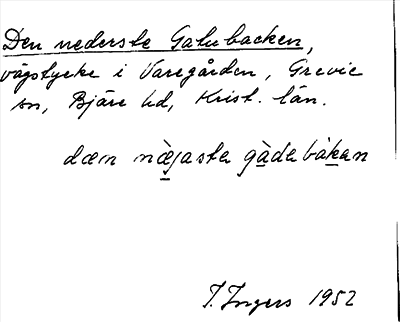 Den nederste Gatubacken,
vägstycke i Varegården, Grevie
sn, Bjäre hd, Krist. län.
dæn næjasta gàdebàkan
I. Ingers 1952